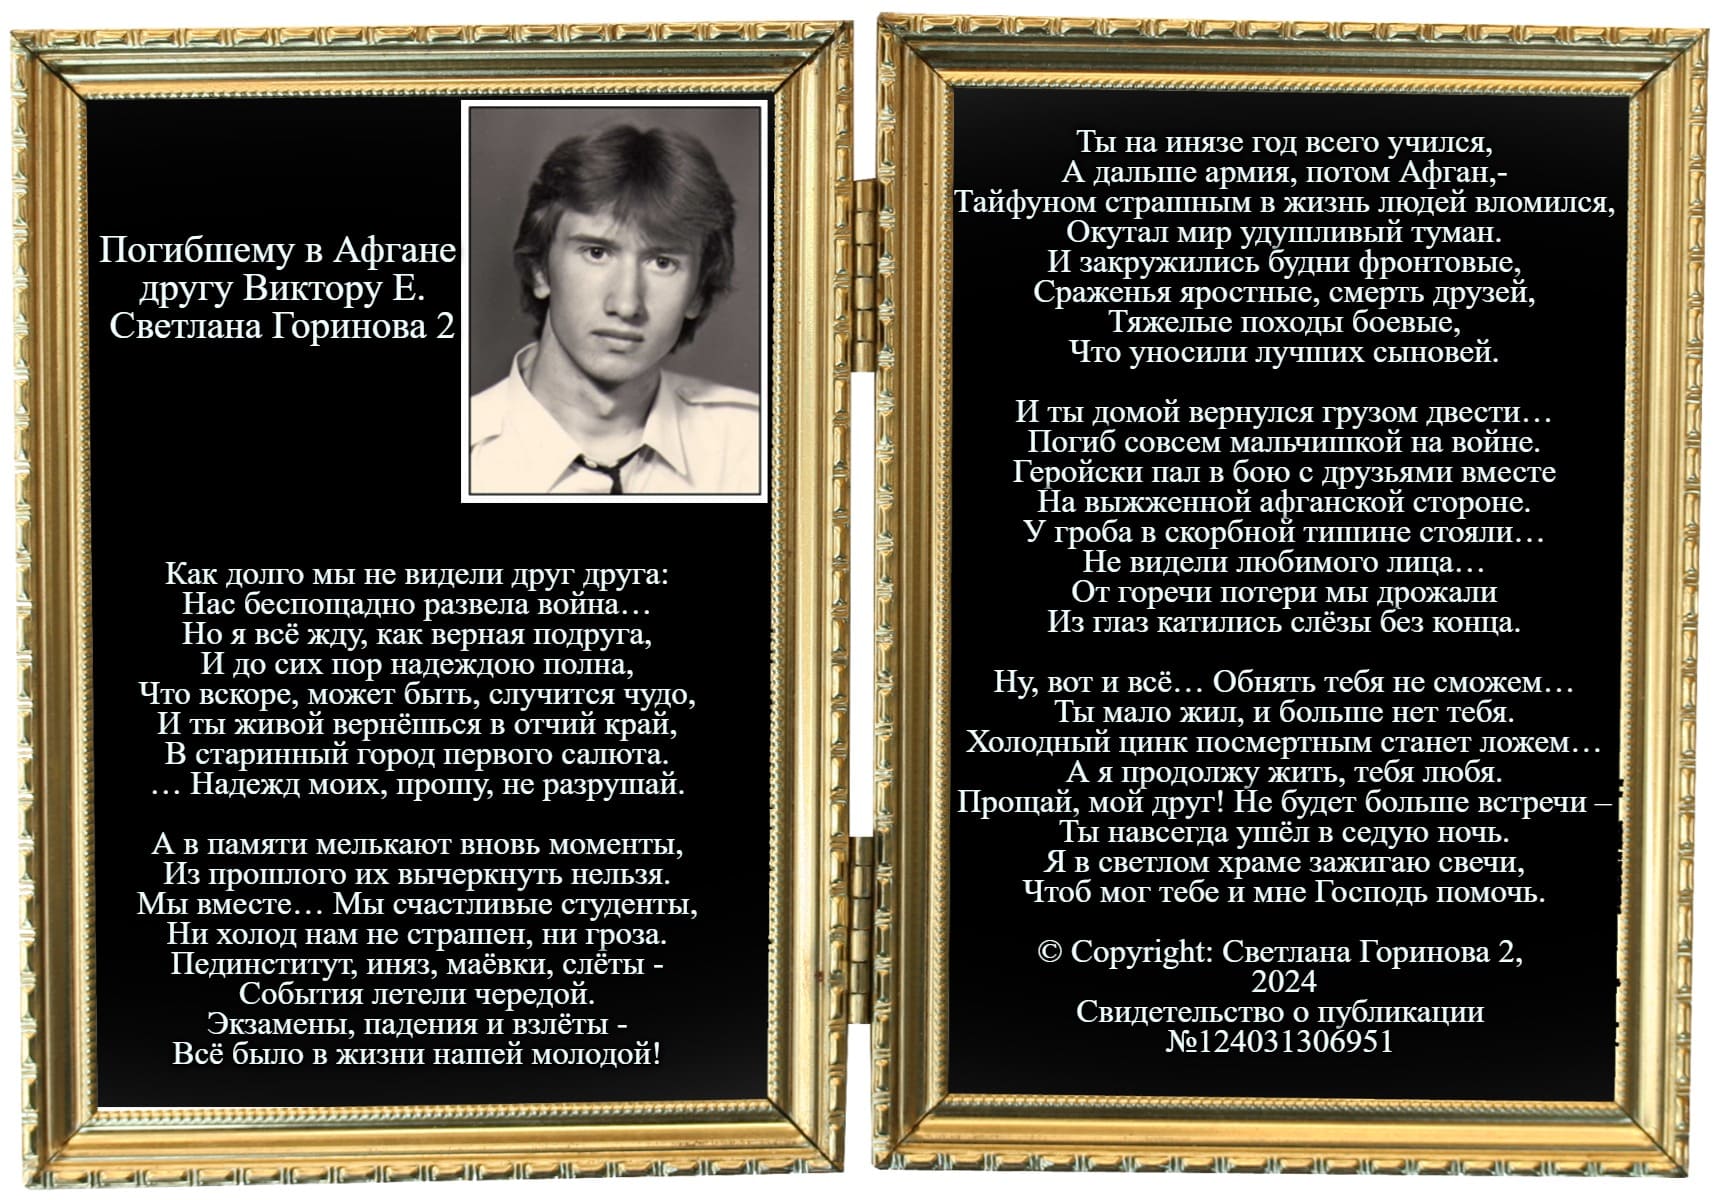 Погибшему в Афгане
другу Виктору Е.
Светлана Горинова 2
Как долго мы не видели друг друга:
Нас беспощадно развела война…
Но я всё жду, как верная подруга,
И до сих пор надеждою полна,
Что вскоре, может быть, случится чудо,
И ты живой вернёшься в отчий край,
В старинный город первого салюта.
… Надежд моих, прошу, не разрушай.
А в памяти мелькают вновь моменты,
Из прошлого их вычеркнуть нельзя.
Мы вместе… Мы счастливые студенты,
Ни холод нам не страшен, ни гроза.
Пединститут, иняз, маёвки, слёты -
События летели чередой.
Экзамены, падения и взлёты -
Всё было в жизни нашей молодой!
Ты на инязе год всего учился,
А дальше армия, потом Афган,-
Тайфуном страшным в жизнь людей вломился,
Окутал мир удушливый туман.
И закружились будни фронтовые,
Сраженья яростные, смерть друзей,
Тяжелые походы боевые,
Что уносили лучших сыновей.
И ты домой вернулся грузом двести…
Погиб совсем мальчишкой на войне.
Геройски пал в бою с друзьями вместе
На выжженной афганской стороне.
У гроба в скорбной тишине стояли…
Не видели любимого лица…
От горечи потери мы дрожали
Из глаз катились слёзы без конца.
Ну, вот и всё… Обнять тебя не сможем…
Ты мало жил, и больше нет тебя.
Холодный цинк посмертным станет ложем…
А я продолжу жить, тебя любя.
Прощай, мой друг! Не будет больше встречи –
Ты навсегда ушёл в седую ночь.
Я в светлом храме зажигаю свечи,
Чтоб мог тебе и мне Господь помочь.
© Copyright: Светлана Горинова 2,
2024
Свидетельство о публикации
№124031306951